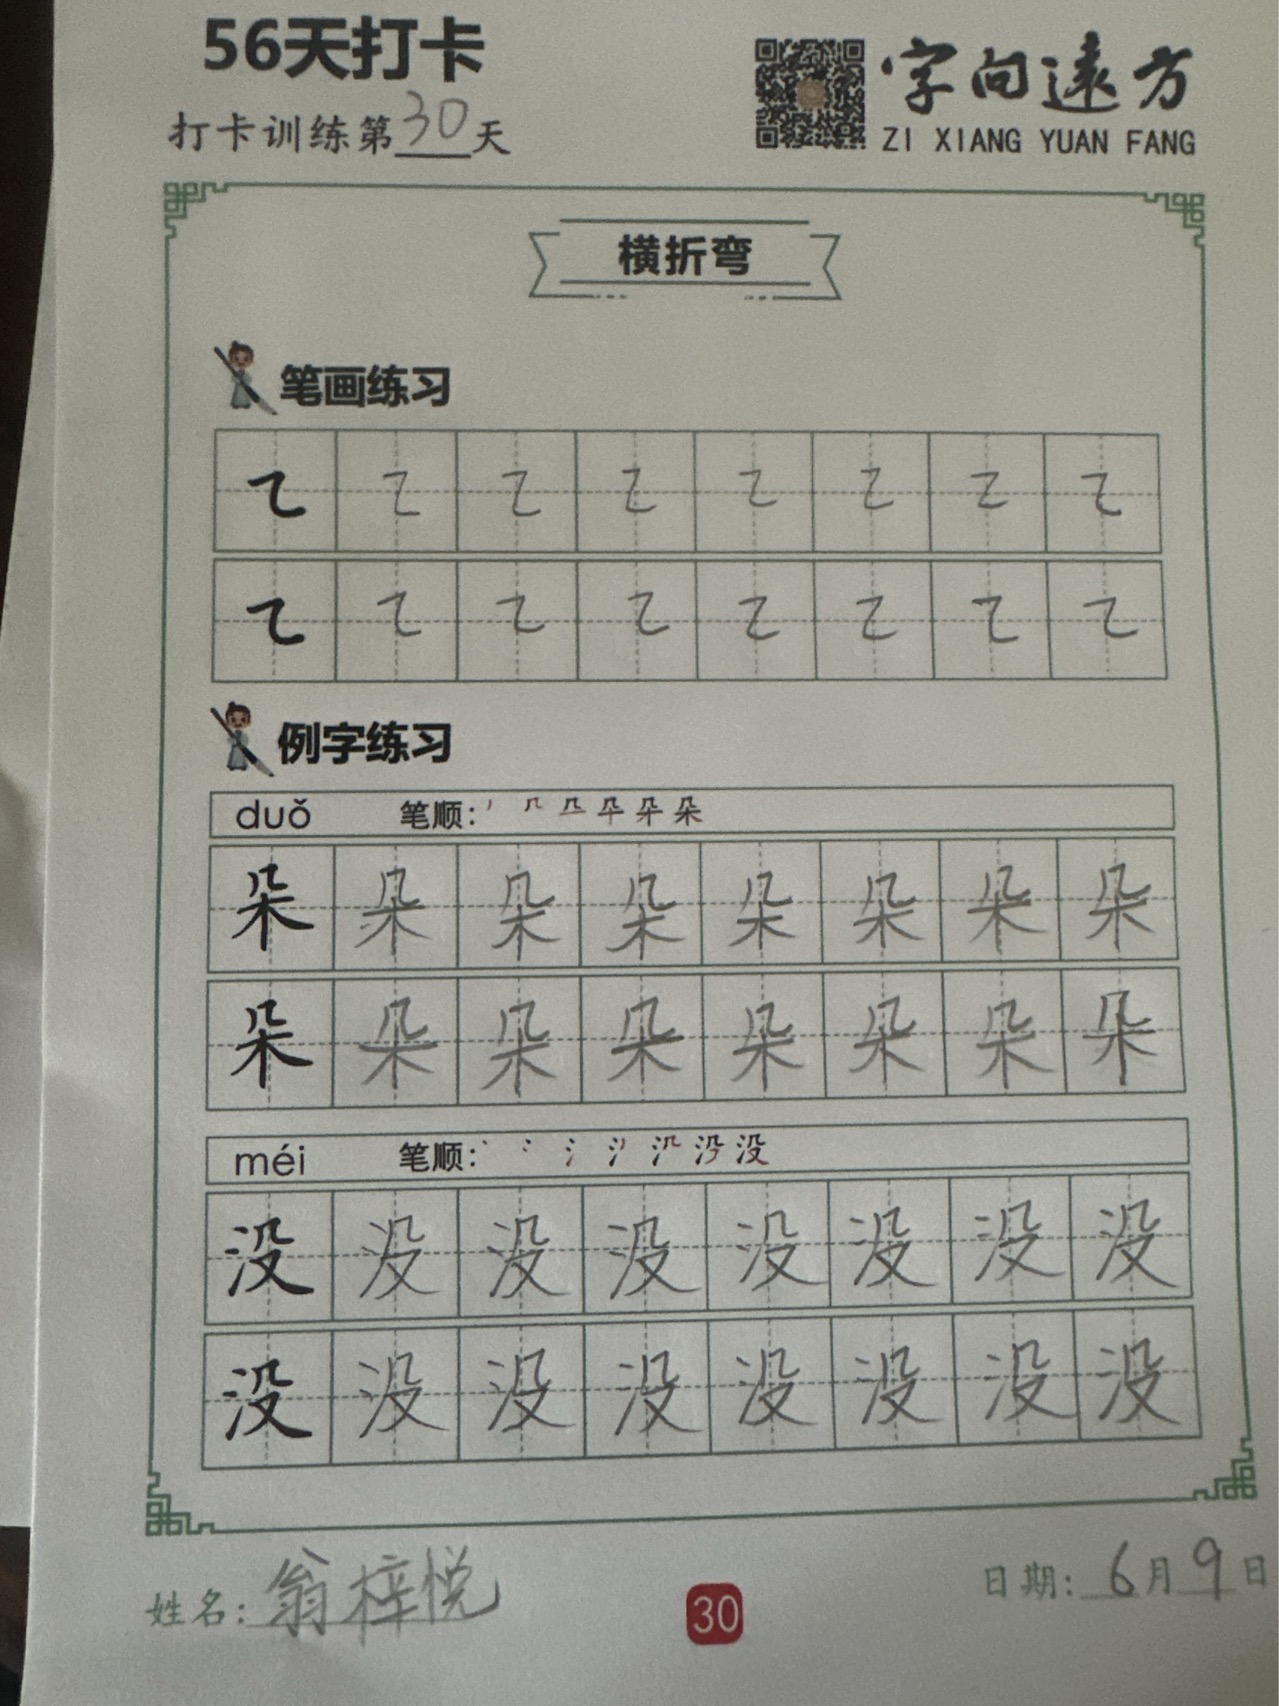 56天打卡
字向远方
打卡训练第30天
ZI XIANG YUAN FANG
横折弯
笔画练习
㇍ ㇍ ㇍ ㇍ ㇍ ㇍ ㇍ ㇍
㇍ ㇍ ㇍ ㇍ ㇍ ㇍ ㇍ ㇍
例字练习
duǒ 笔顺：
朵 朵 朵 朵 朵 朵 朵 朵
朵 朵 朵 朵 朵 朵 朵 朵
méi 笔顺：
没 没 没 没 没 没 没 没
没 没 没 没 没 没 没 没
姓名：翁梓悦
30
日期：6月9日